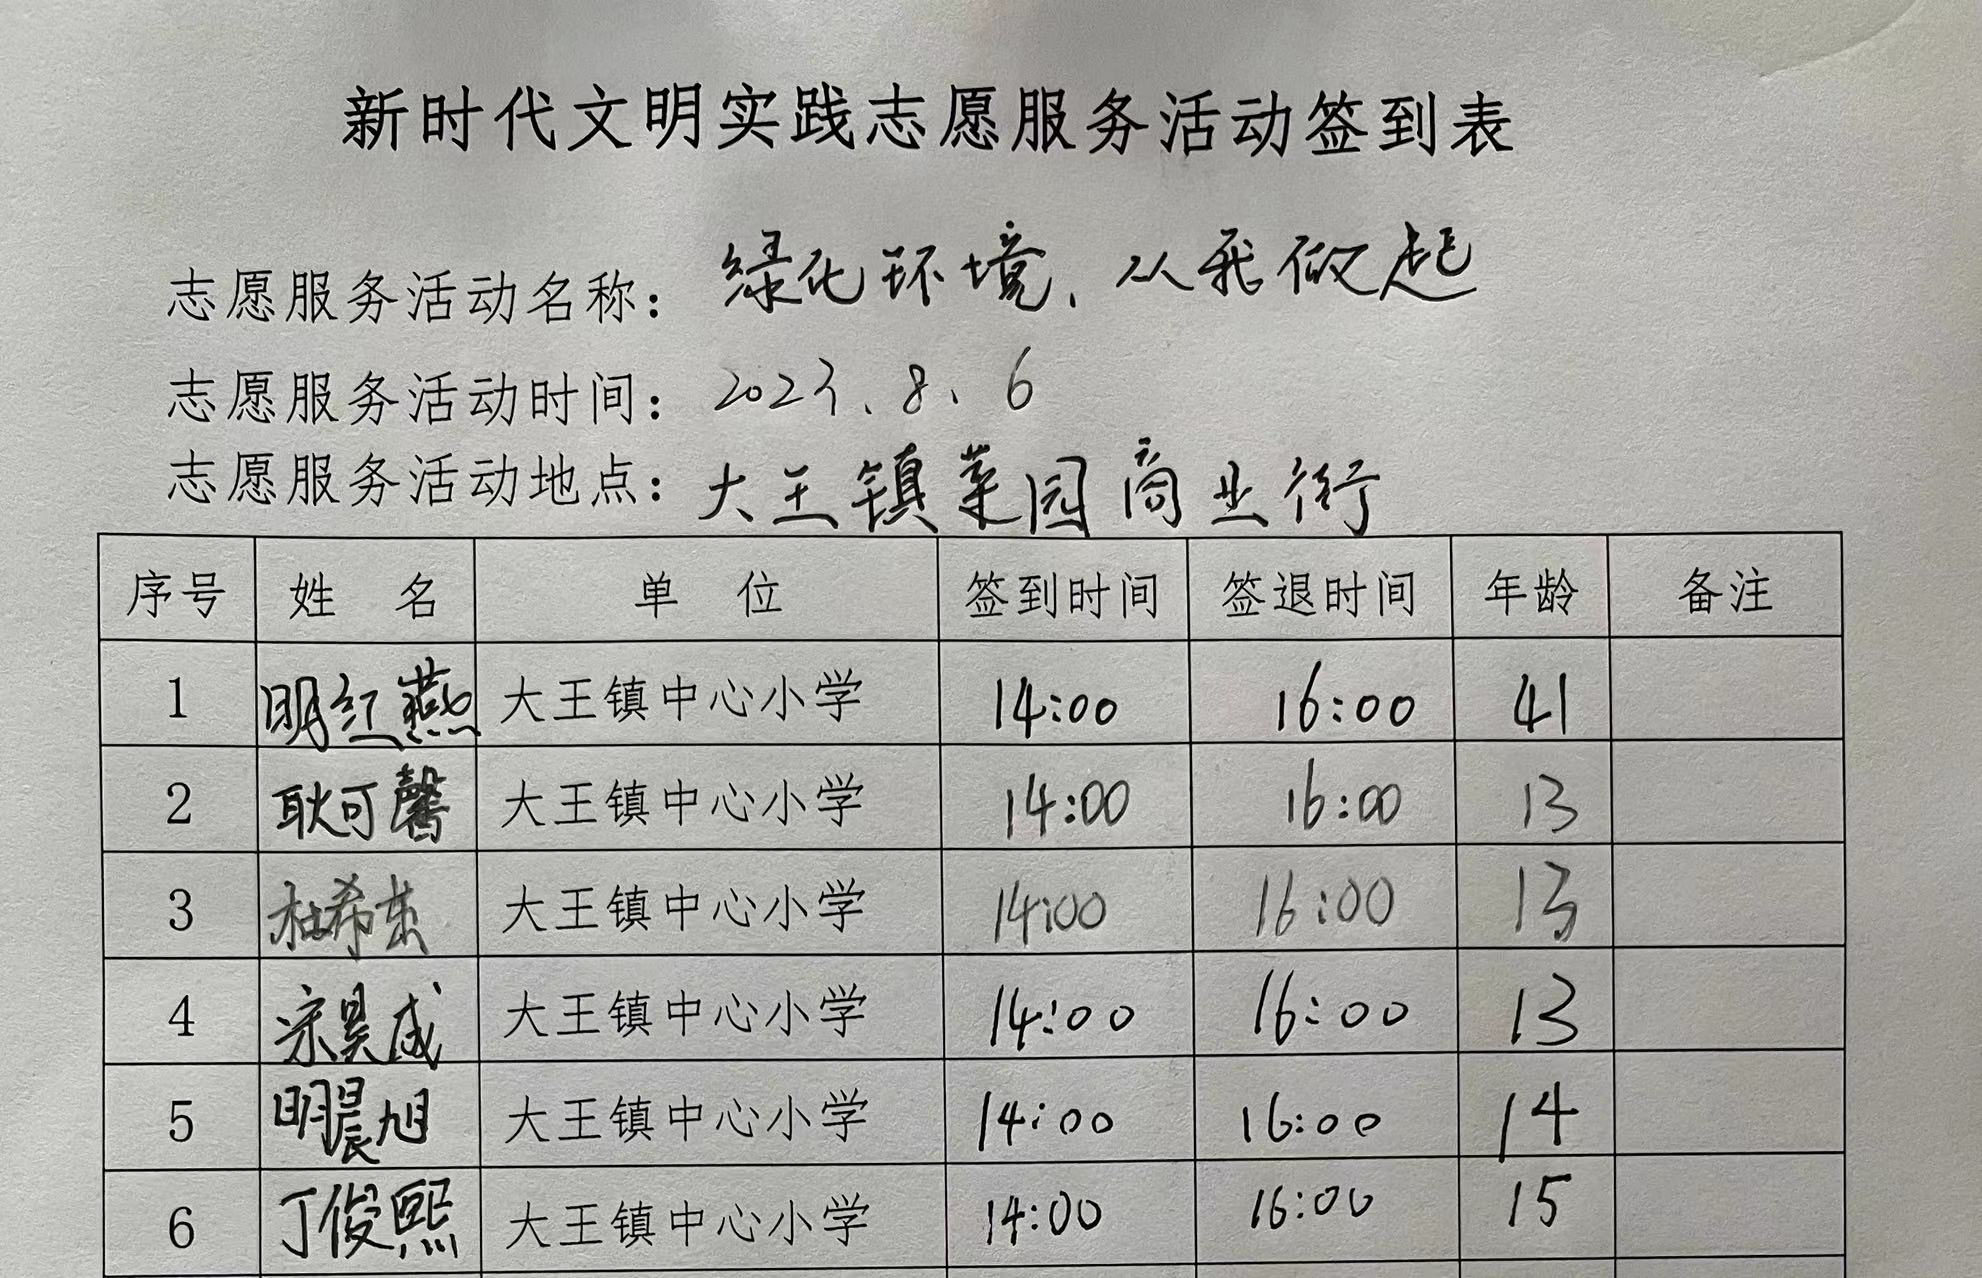 新时代文明实践志愿服务活动签到表
志愿服务活动名称：绿化环境、从我做起
志愿服务活动时间：2023、8、6
志愿服务活动地点：大王镇菜园商业街
序号 姓 名 单 位 签到时间 签退时间 年龄 备注
1 明红燕 大王镇中心小学 14:00 16:00 41
2 耿可馨 大王镇中心小学 14:00 16:00 13
3 杜希 大王镇中心小学 14:00 16:00 13
4 宋昊成 大王镇中心小学 14:00 16:00 13
5 明晨旭 大王镇中心小学 14:00 16:00 14
6 丁俊熙 大王镇中心小学 14:00 16:00 15